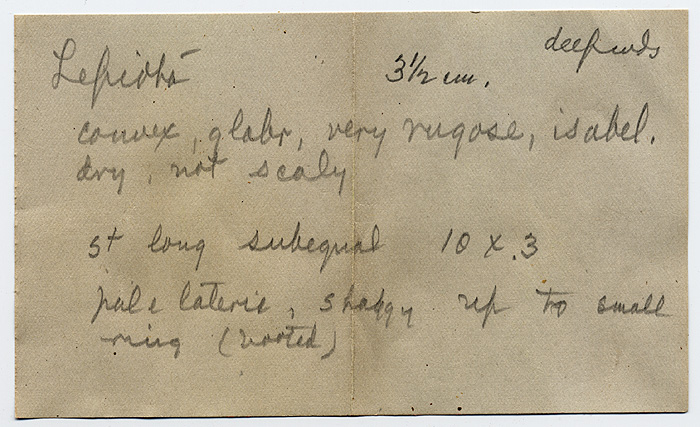 deep wds
Lepiota 3 1/2 cm.
convex, glabr, very rugose, isabel.
dry, not scaly
st long subequal 10 x .3
pale lateric, shaggy up to small
ring (rooted)